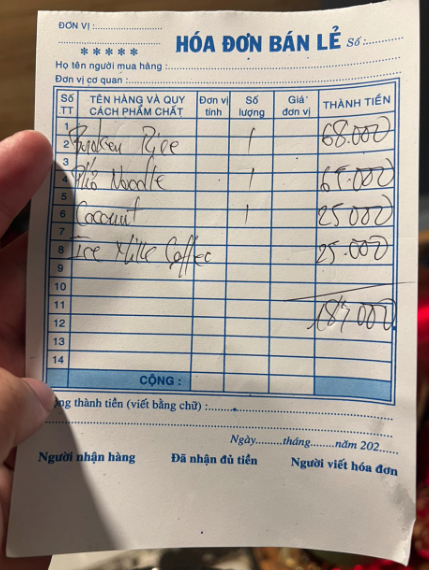 ĐƠN VỊ :
*****
HÓA ĐƠN BÁN LẺ Số :
Họ tên người mua hàng :
Đơn vị cơ quan :
Số TT TÊN HÀNG VÀ QUY CÁCH PHẨM CHẤT Đơn vị tính Số lượng Giá đơn vị THÀNH TIỀN
1
2 Broken Rice 1 68.000
3
4 Phở Noodle 1 65.000
5
6 Coconut 1 25000
7
8 Ice Milk Coffee 25.000
9
10
11 183.000
12
13
14
CỘNG :
thành tiền (viết bằng chữ) :
Ngày.........tháng.........năm 202.....
Người nhận hàng Đã nhận đủ tiền Người viết hóa đơn